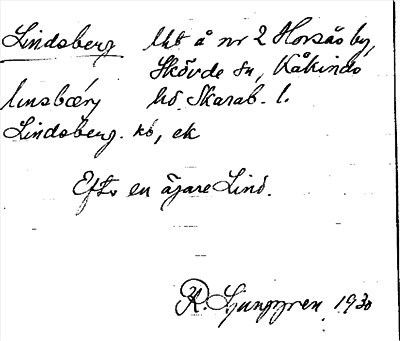 Lindsberg Utt å nr 2 Horsås by,
Skövde sn, Kåkinds
linsbærj hd. Skarab. l.
Lindsberg. ko, ek
Eft. en ägare Lind.
R. Ljunggren 1930